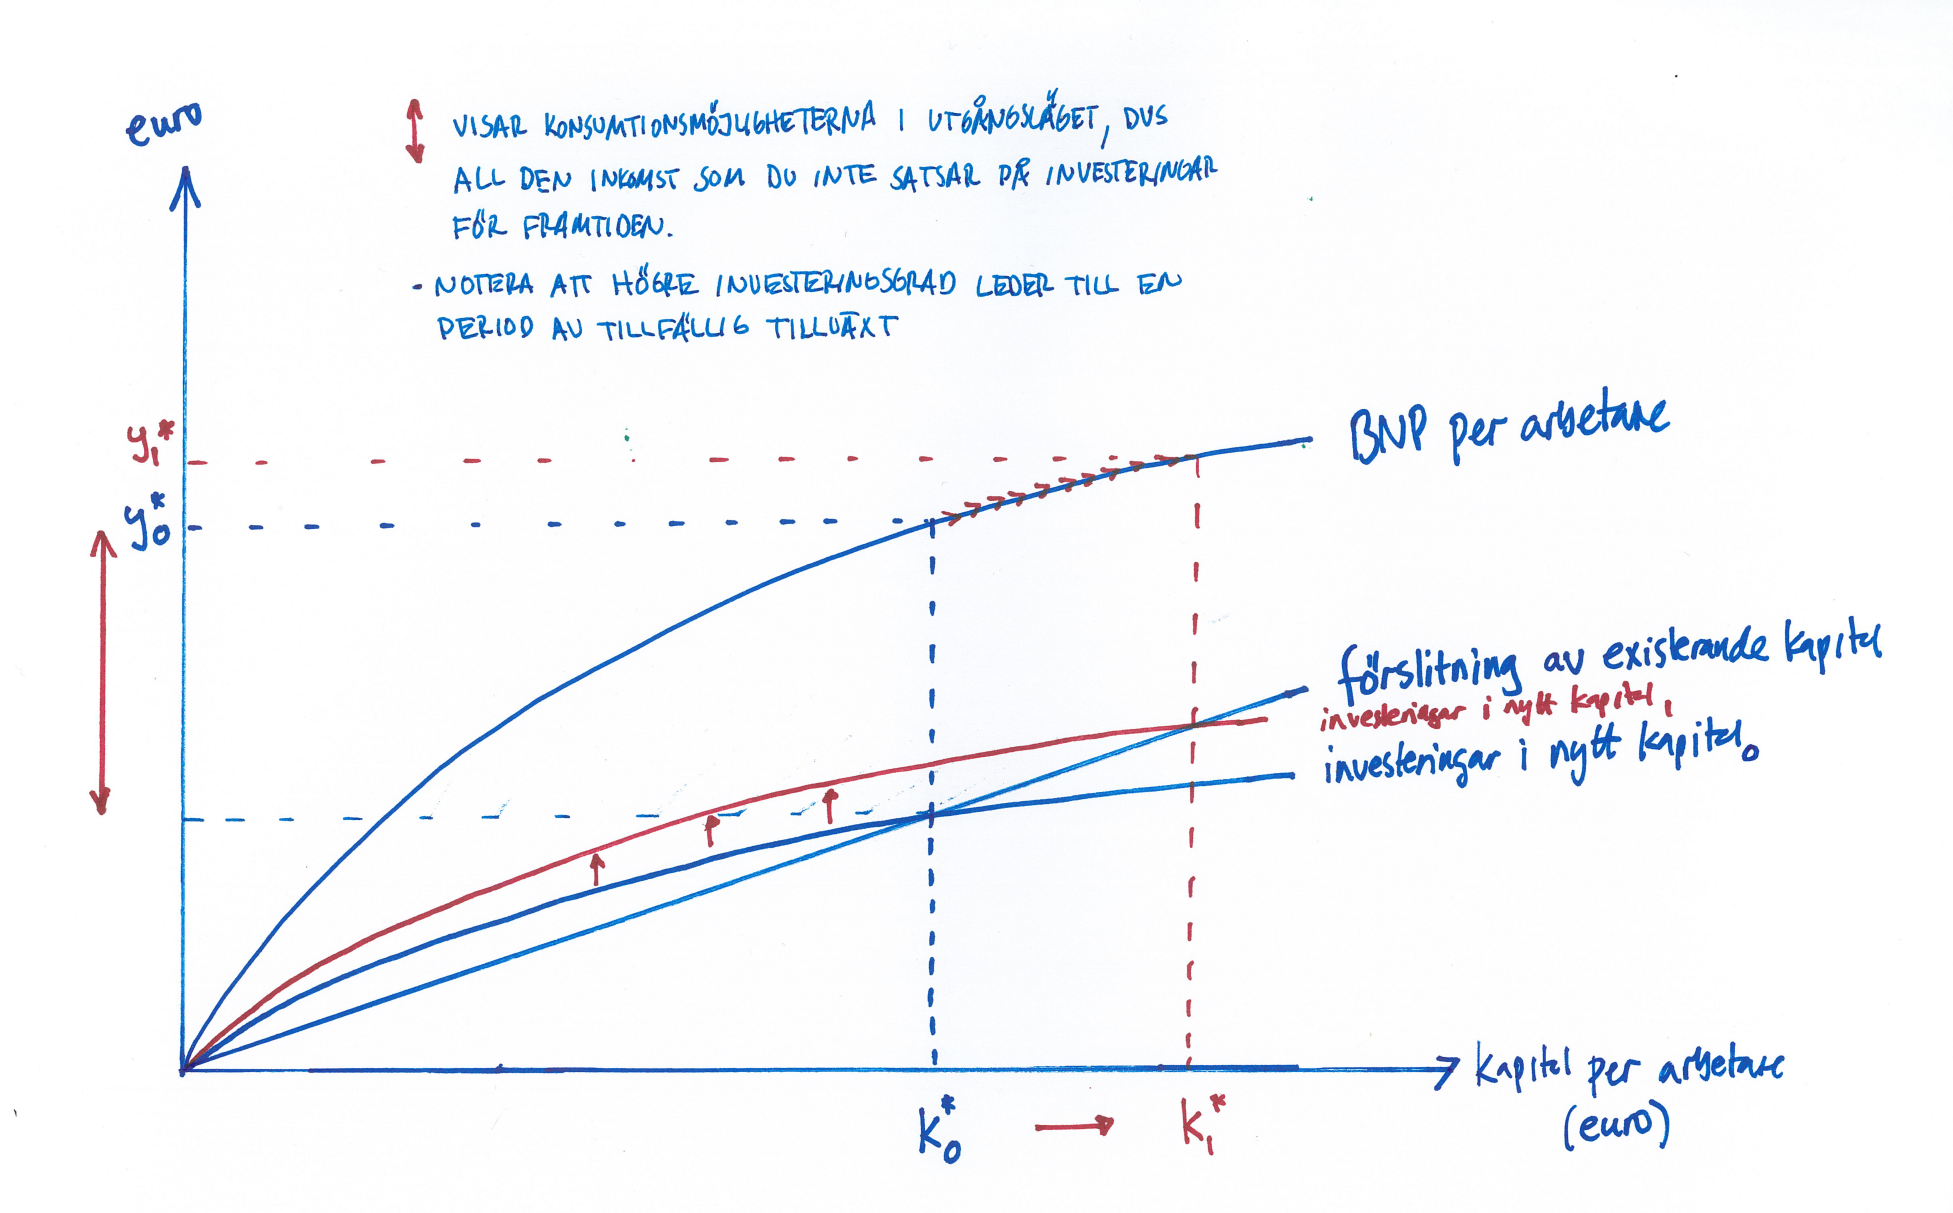 euro
VISAR KONSUMTIONSMÖJLIGHETERNA I UTGÅNGSLÄGET, DVS
ALL DEN INKOMST SOM DU INTE SATSAR PÅ INVESTERINGAR
FÖR FRAMTIDEN.
- NOTERA ATT HÖGRE INVESTERINGSGRAD LEDER TILL EN
PERIOD AV TILLFÄLLIG TILLVÄXT
y₁*
BNP per arbetare
y₀*
förslitning av existerande kapital
investeringar i nytt kapital₁
investeringar i nytt kapital₀
kapital per arbetare
(euro)
k₀* → k₁*